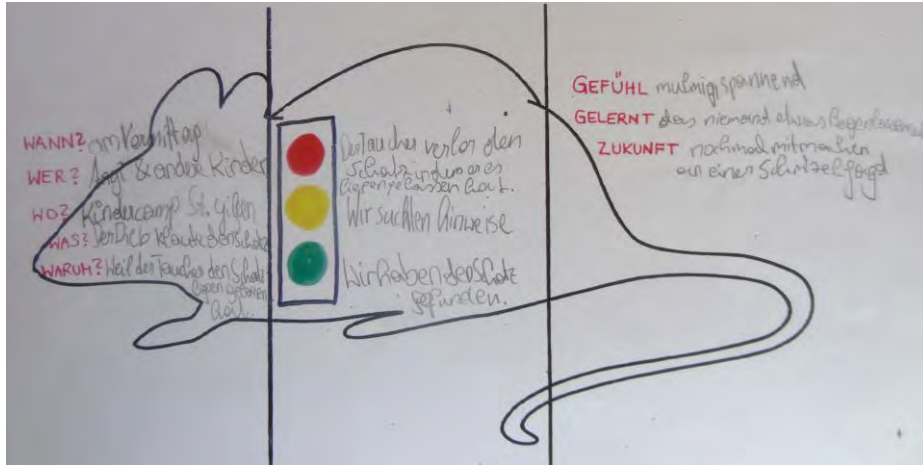 WANN? am Vormittag
WER? & andere Kinder
WO? Kindercamp St. Gilgen
WAS? Der Dieb klaute den schatz
WARUM? Weil der Taucher den Schatz
liegen gelassen
hat.
Der Taucher verlor den
Schatz indem er es
liegengelassen hat.
Wir suchten hinweise
Wir haben den Schatz
gefunden.
GEFÜHL mulmig, spannend
GELERNT das niemand etwas liegenlassen
ZUKUNFT nochmal mitmachen
an einer Schnitzeljagd